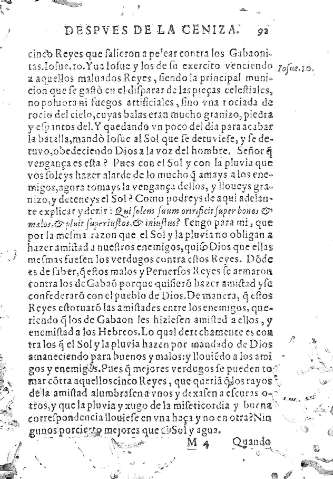 DESPVES DE LA CENIZA. 92
cinco Reyes que salieron a pelear contra los Gabaoni-
tas. Iosue. 10. Y ua Iosue y los de su exercito venciendo
Iosue. 10.
a aquellos maluados Reyes, siendo la principal muni-
cion que se gastó en el disparar de las pieças celestiales,
no poluora ni fuegos artificiales, sino vna rociada de
rocio del cielo, cuyas balas eran mucho granizo, piedra
y espantos del. Y quedando vn poco del dia para acabar
la batalla, mandó Iosue al Sol que se detuuiese, y se de-
tuuo, obedeciendo Dios a la voz del hombre. Señor q̃
vengança es esta? Pues con el Sol y con la pluvia que
vos soleys hazer alarde de lo mucho q̃ amays a los ene-
migos, agora tomays la vengança dellos, y lloueys gra-
nizo, y deteneys el Sol? Como podreys de aqui adelan-
te explicar y dezir: Qui solem suum oriri facit super bonos &
malos, & pluit super iustos & iniustos? Tengo para mi, que
por la mesma razon que el Sol y la pluvia no obligan a
hazer amistad a nuestros enemigos, quiso Dios que ellas
mesmas fuessen los verdugos contra estos Reyes. Dõde
es de saber, q̃ estos malos y Peruersos Reyes se armaron
contra los de Gabaõ porque quisierõ hazer amistad y se
confederarõ con el pueblo de Dios. De manera, q̃ estos
Reyes estoruarõ las amistades entre los enemigos, que-
riendo q̃ los de Gabaon les hiziessen amistad a ellos, y
enemistad a los Hebreos. Lo qual derechamente es con
tra los q̃ el Sol y la pluvia hazen por mandado de Dios
amaneciendo para buenos y malos: y llouiẽdo a los ami
gos y enemigos. Pues q̃ mejores verdugos se pueden to
mar cõtra aquellos cinco Reyes, que queriã q̃ los rayos
de la amistad alumbrassen a vnos y dexassen a escuras o-
tros, y que la pluvia y xugo de la misericordia y buena
correspondencia llouiesse en vna haça y no en otra? Nin
gunos por cierto mejores que el Sol y agua.
M 4 Quando